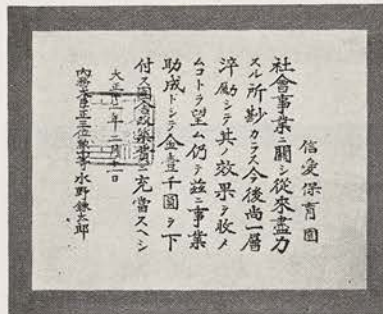 信愛保育園
社會事業ニ關シ從來盡力
スル所尠カラス今後尚一層
淬勵シテ其ノ效果ヲ收メ
ムコトヲ望ム仍テ茲ニ事業
助成トシテ金壹千圓ヲ下
付ス園舍改築費ニ充當スヘシ
大正十二年二月十一日
內務大臣正三位勲一等水野錬太郎